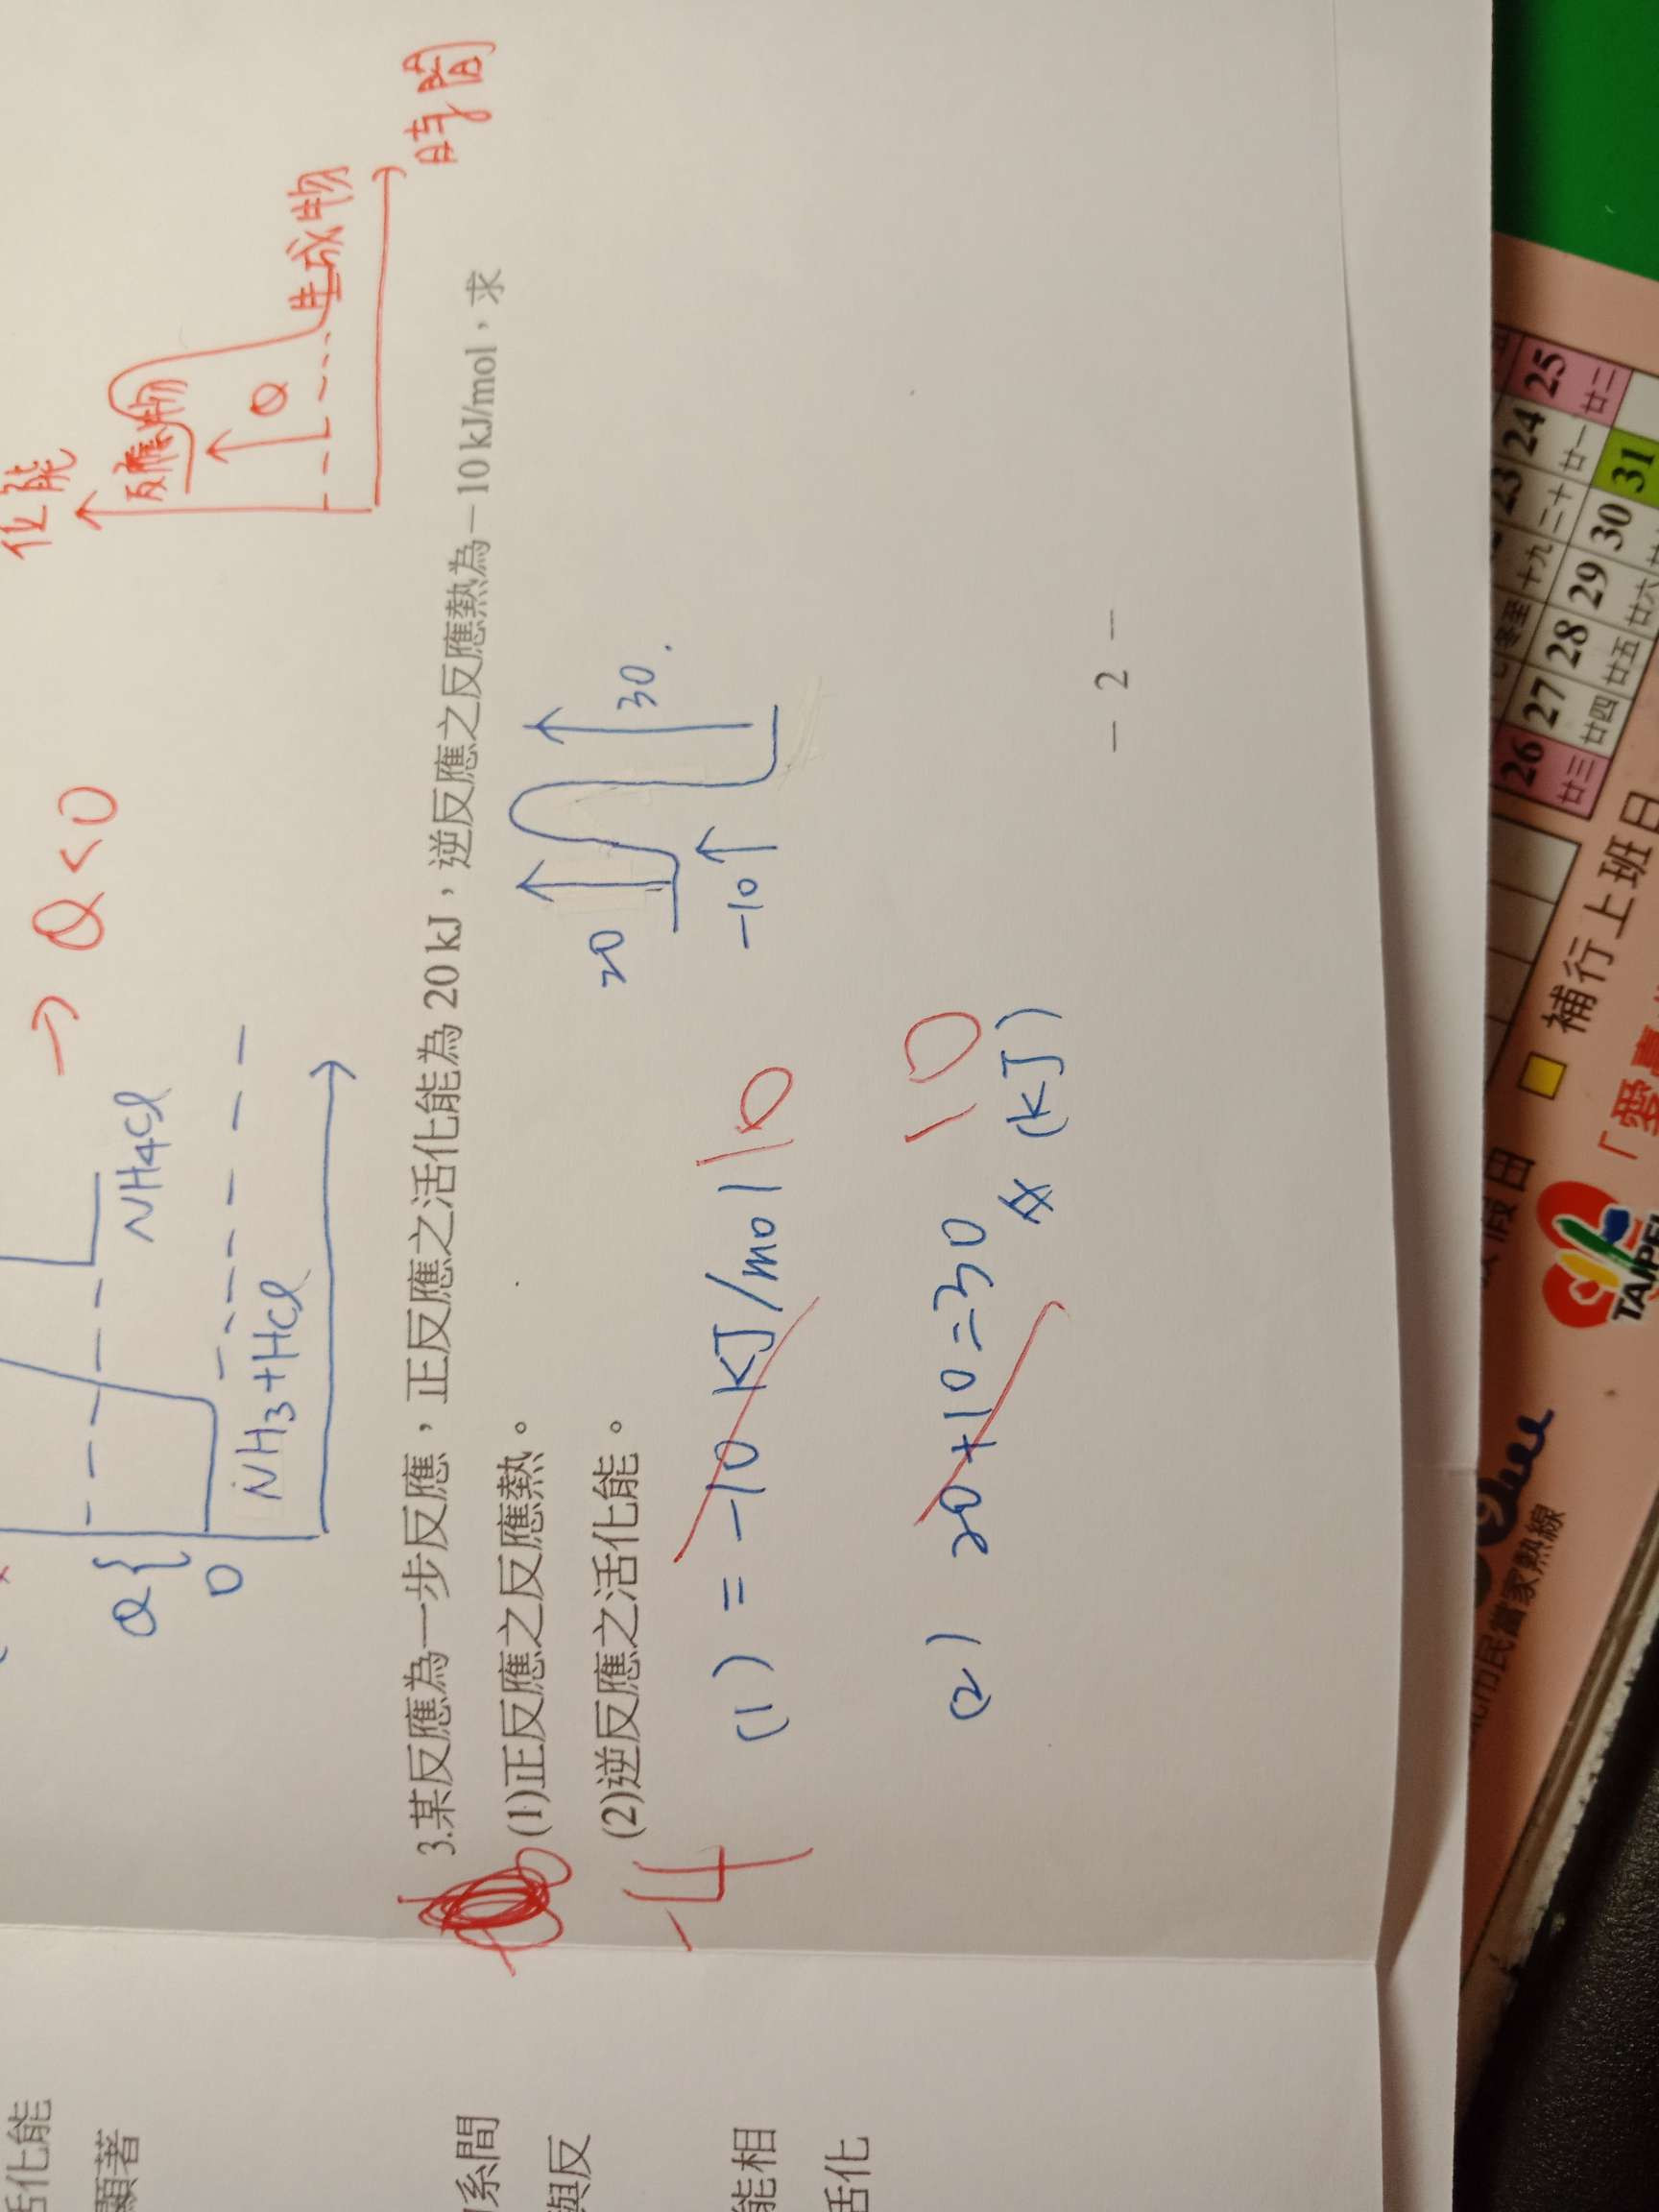 位能
反應物
Q
生成物
時間
→ Q<0
Q{
0
NH4Cl
NH3+HCl
3.某反應為一步反應，正反應之活化能為 20 kJ，逆反應之反應熱為－10 kJ/mol，求
(1)正反應之反應熱。
(2)逆反應之活化能。
20
30.
-10
(1) = -10 kJ/mol 10
(2) 20+10=30 10
(kJ)
－ 2 －
活化能
顯著
關係間
與反
能相
活化
23 24 25
十九 二十 廿一 廿二
26 27 28 29 30 31
廿三 廿四 廿五 廿六
補行上班日
假日
TAIPEI
市民當家熱線